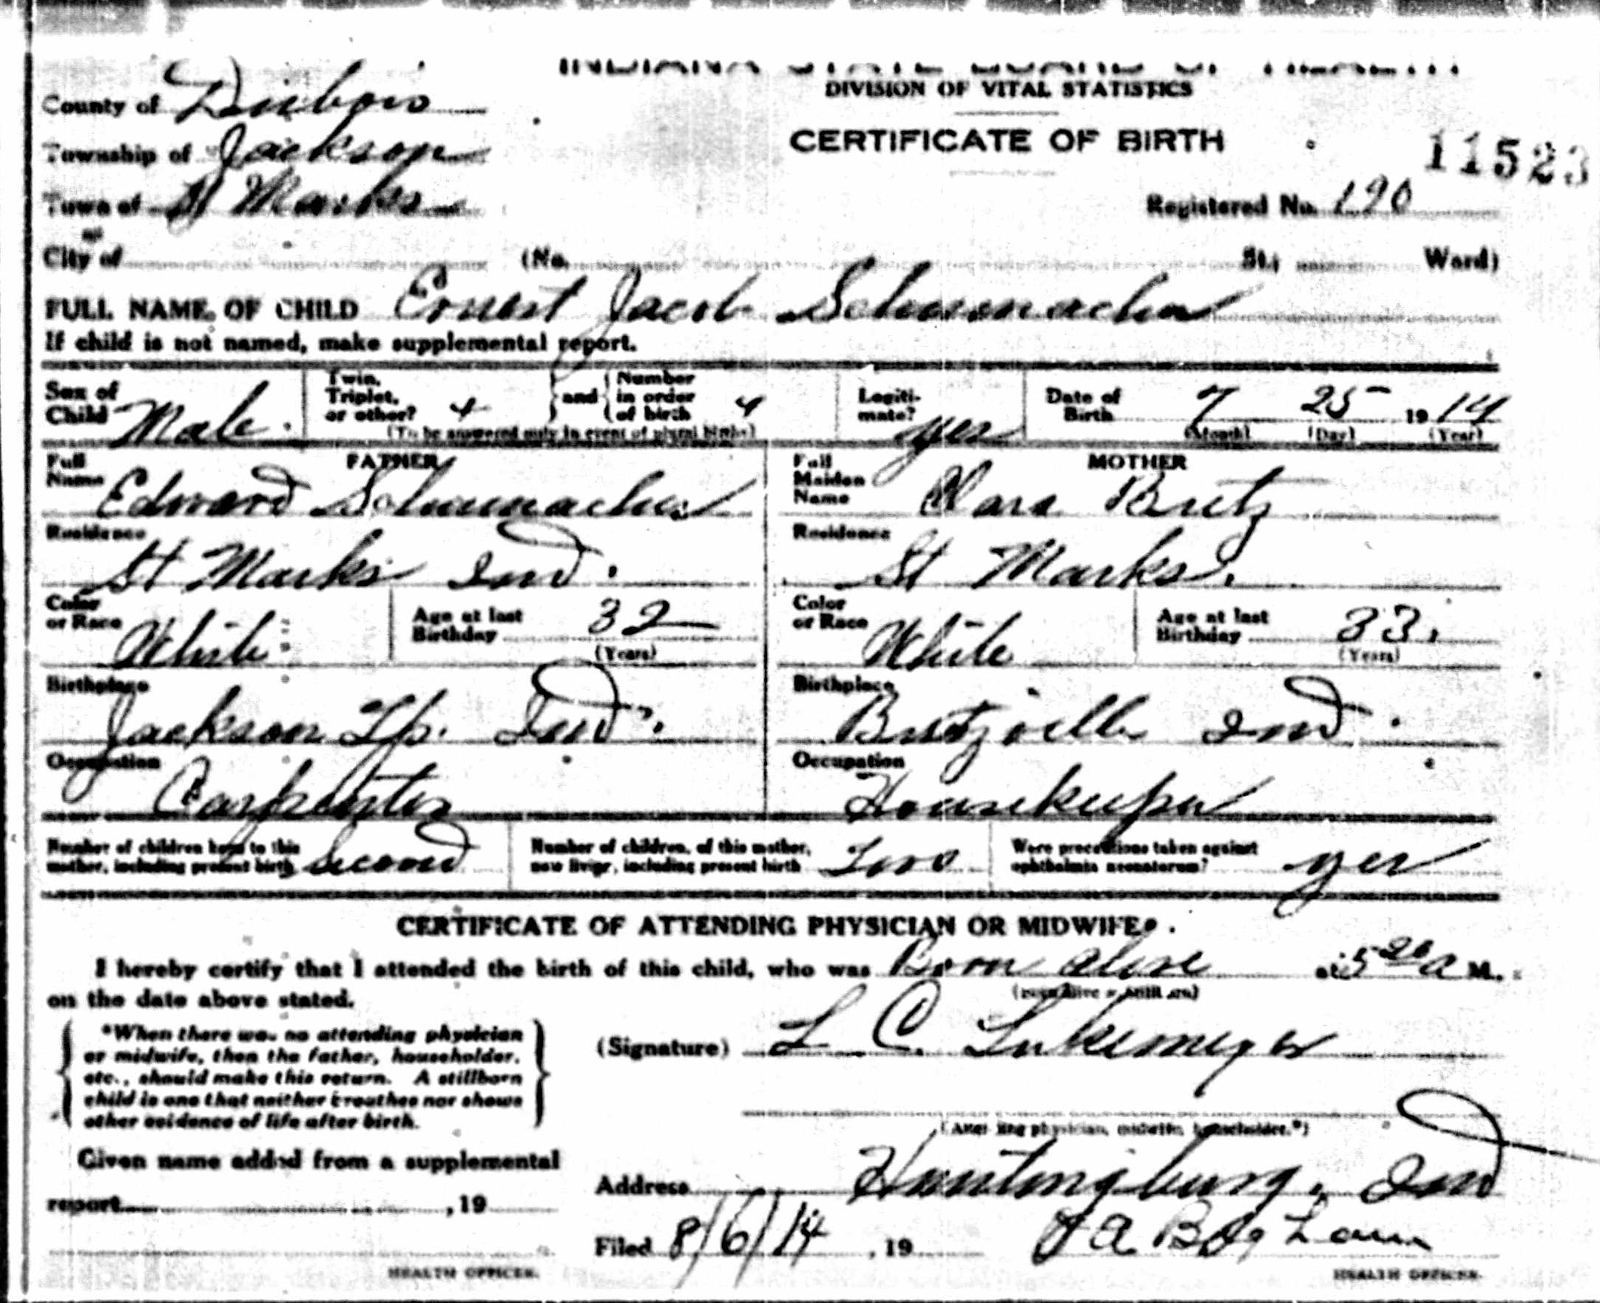 INDIANA STATE BOARD OF HEALTH
DIVISION OF VITAL STATISTICS
CERTIFICATE OF BIRTH
11523
County of Dubois
Township of Jackson
Town of St Marks
Registered No. 190
or
City of (No. St.; Ward)
FULL NAME OF CHILD Ernest Jacob Schumacher
If child is not named, make supplemental report.
Sex of Child Male.
Twin, Triplet, or other? and Number in order of birth
(To be answered only in event of plural births)
Legitimate? yes
Date of Birth 7 25 1914
(Month) (Day) (Year)
FATHER
Full Name Edward Schumacher
MOTHER
Full Maiden Name Clara Bretz
Residence St Marks Ind.
Residence St Marks.
Color or Race White
Age at last Birthday 32
(Years)
Color or Race White
Age at last Birthday 33.
(Years)
Birthplace Jackson Tp. Ind.
Birthplace Bretzville Ind.
Occupation Carpenter
Occupation Housekeeper
Number of children born to this mother, including present birth Second
Number of children, of this mother, now living, including present birth Two
Were precautions taken against ophthalmia neonatorum? yes
CERTIFICATE OF ATTENDING PHYSICIAN OR MIDWIFE.
I hereby certify that I attended the birth of this child, who was Born alive at 5 20 a M.
(Born alive or Still born)
on the date above stated.
*When there was no attending physician
or midwife, then the father, householder,
etc., should make this return. A stillborn
child is one that neither breathes nor shows
other evidence of life after birth.
(Signature) L C. Lukemeyer
(Attending physician, midwife, householder.*)
Given name added from a supplemental
report , 19
HEALTH OFFICER.
Address Huntingburg, Ind
Filed 8/6/14 , 19
HEALTH OFFICER.